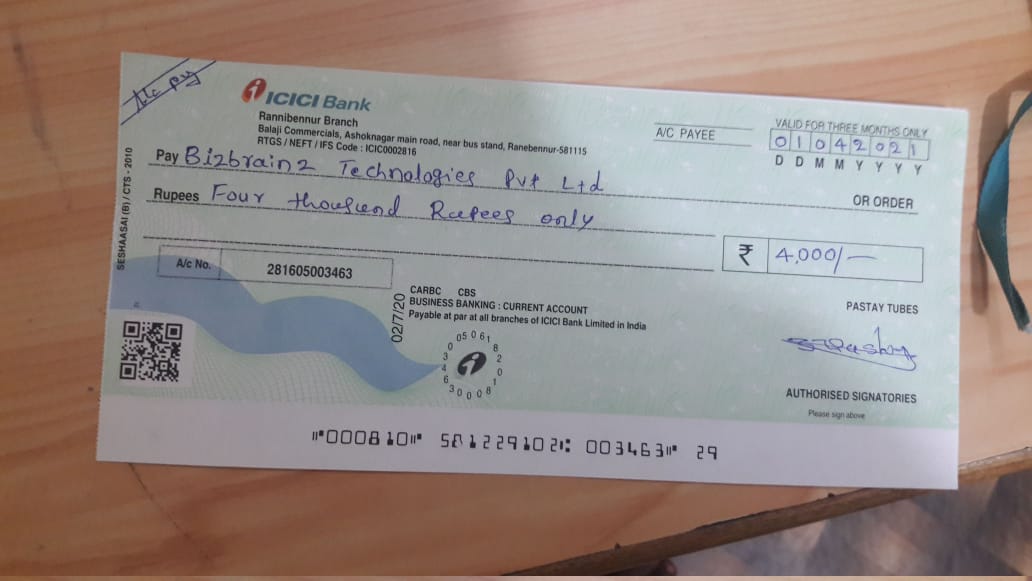 A/c py
ICICI Bank
Rannibennur Branch
Balaji Commercials, Ashoknagar main road, near bus stand, Ranebennur-581115
RTGS / NEFT / IFS Code : ICIC0002816
A/C PAYEE
VALID FOR THREE MONTHS ONLY
01042021
D D M M Y Y Y Y
Pay Bizbrainz Technologies Pvt Ltd
OR ORDER
Rupees Four thousend Rupees only
₹ 4,000/-
A/c No. 281605003463
SESHAASAI (B) / CTS - 2010
02/7/20
CARBC CBS
BUSINESS BANKING : CURRENT ACCOUNT
Payable at par at all branches of ICICI Bank Limited in India
PASTAY TUBES
AUTHORISED SIGNATORIES
Please sign above
⑈000810⑈ 581229102⑆ 003463⑈ 29